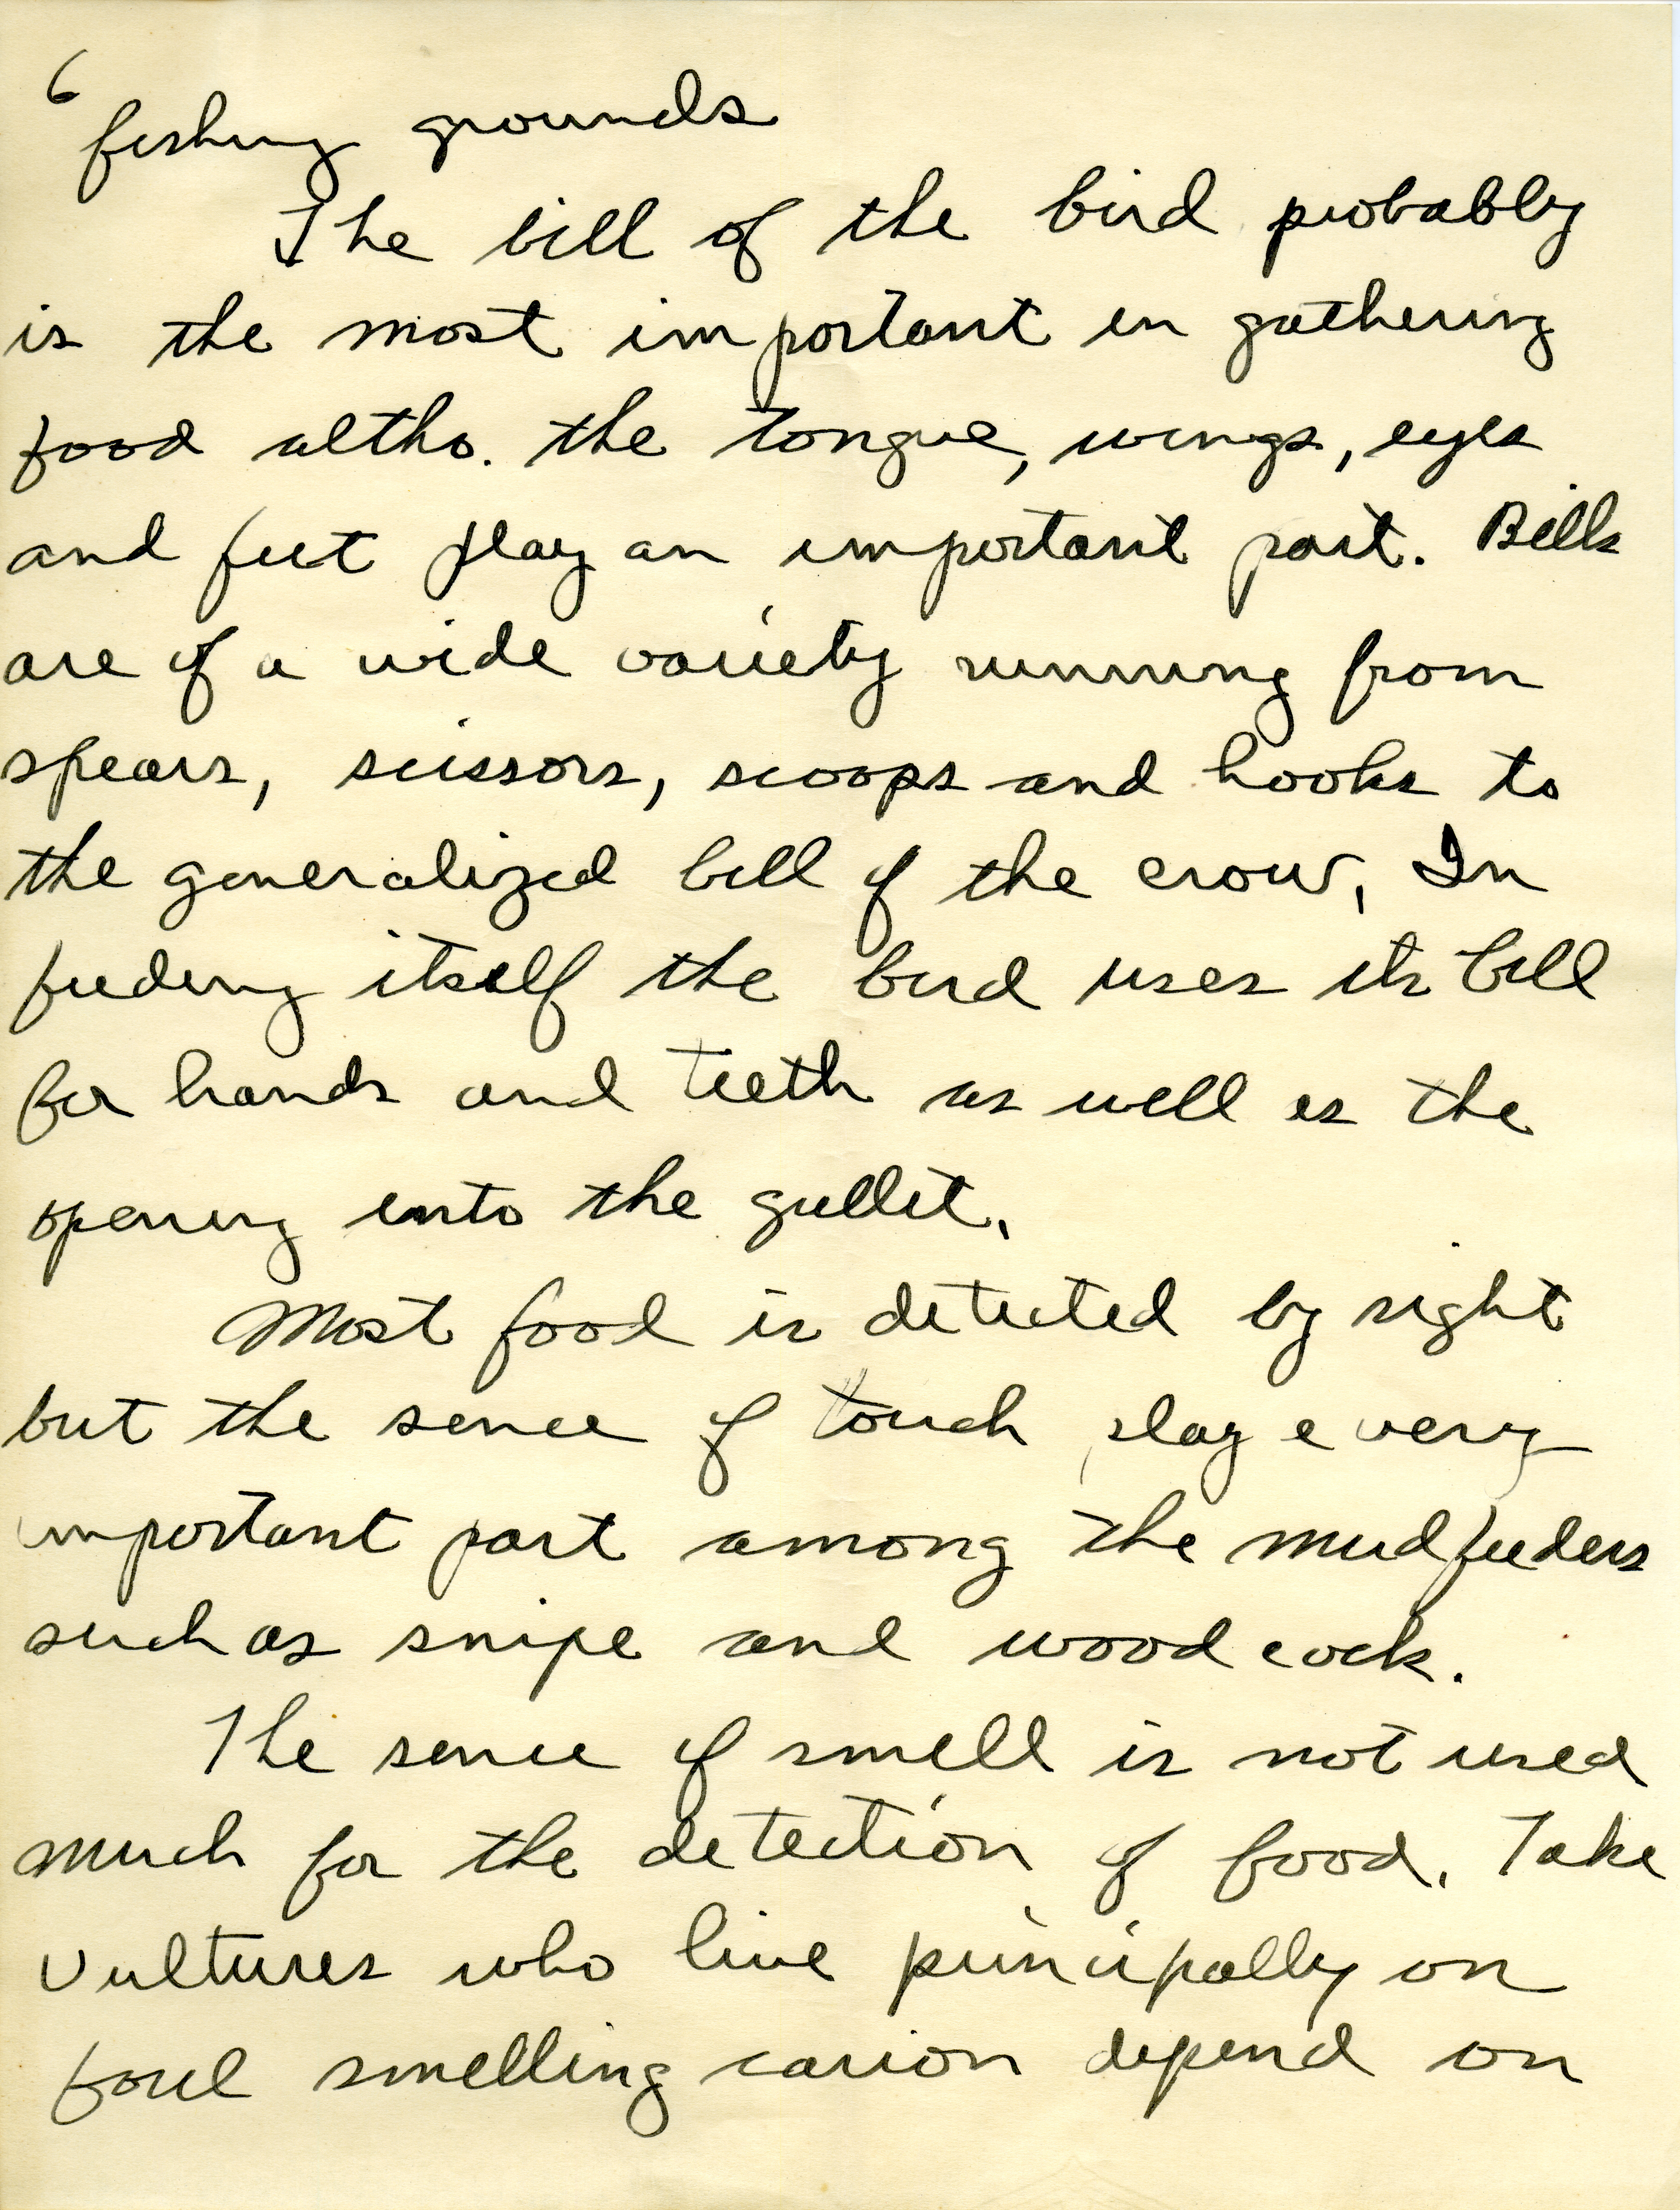 6
fishing grounds
The bill of the bird probably
is the most important in gathering
food altho. the tongue, wings, eyes
and feet play an important part. Bills
are of a wide variety running from
spears, scissors, scoops and hooks to
the generalized bill of the crow, In
feeding itself the bird uses its bill
for hands and teeth as well as the
opening into the gullet.
Most food is detected by sight
but the sence of touch play a very
important part among the mud feeders
such as snipe and wood cock.
The sence of smell is not used
much for the detection of food. Take
vultures who live principally on
foul smelling carion depend on